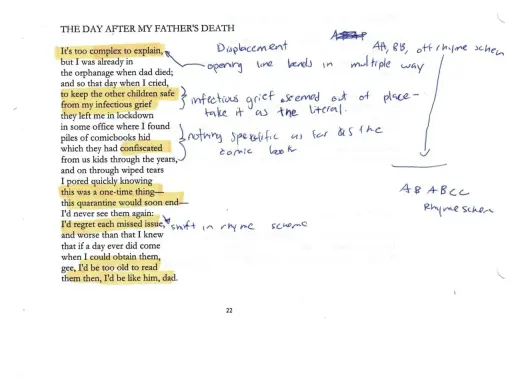 THE DAY AFTER MY FATHER'S DEATH
It's too complex to explain,
but I was already in
the orphanage when dad died;
and so that day when I cried,
to keep the other children safe
from my infectious grief
they left me in lockdown
in some office where I found
piles of comicbooks hid
which they had confiscated
from us kids through the years,
and on through wiped tears
I pored quickly knowing
this was a one-time thing—
this quarantine would soon end—
I'd never see them again:
I'd regret each missed issue,
and worse than that I knew
that if a day ever did come
when I could obtain them,
gee, I'd be too old to read
them then, I'd be like him, dad.
Displacement
opening line bends in multiple way
infectious grief seemed out of place -
take it as the literal.
nothing spesific as far as the
comic book
shift in rhyme scheme
AA, BB, off rhyme schem
AB ABCC
Rhyme schem
22